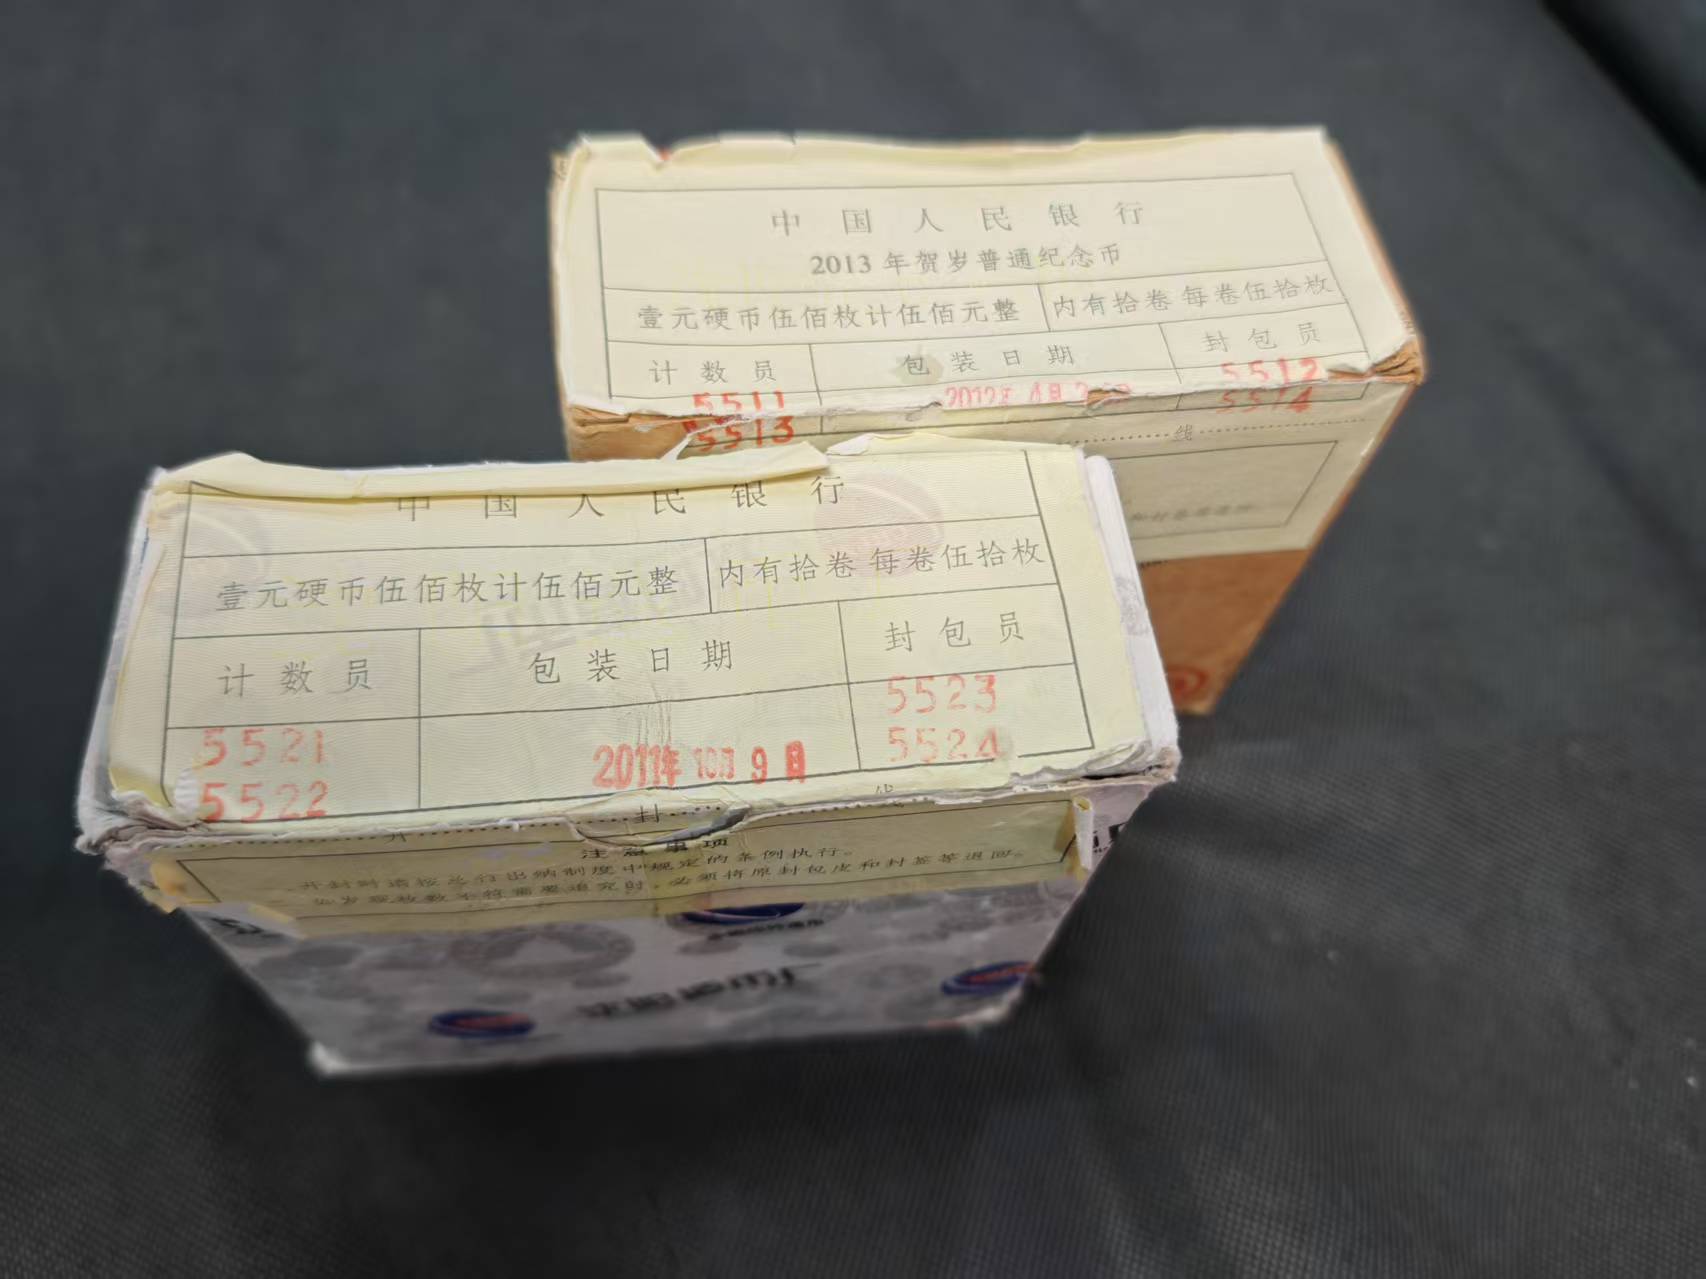 中国人民银行
2013年贺岁普通纪念币
壹元硬币伍佰枚计伍佰元整 内有拾卷 每卷伍拾枚
计数员 包装日期 封包员
5511 2012年 4月 5512
5513 5514
线
中国人民银行
壹元硬币伍佰枚计伍佰元整 内有拾卷 每卷伍拾枚
计数员 包装日期 封包员
5521 2011年 10月 9日 5523
5522 5524
封
注意事项
开封时请按总行出纳制度中规定的条例执行。
如发现枚数不符需要追究时，必须将原封包皮和封签等退回。